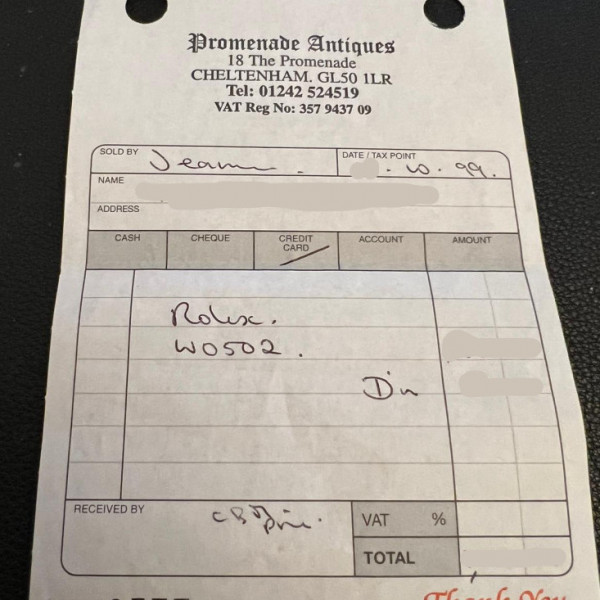 Promenade Antiques
18 The Promenade
CHELTENHAM. GL50 1LR
Tel: 01242 524519
VAT Reg No: 357 9437 09
SOLD BY
DATE / TAX POINT
. 10 . 99.
NAME
ADDRESS
CASH CHEQUE CREDIT CARD ACCOUNT AMOUNT
Rolex.
W0502.
RECEIVED BY
VAT %
TOTAL
Thank You